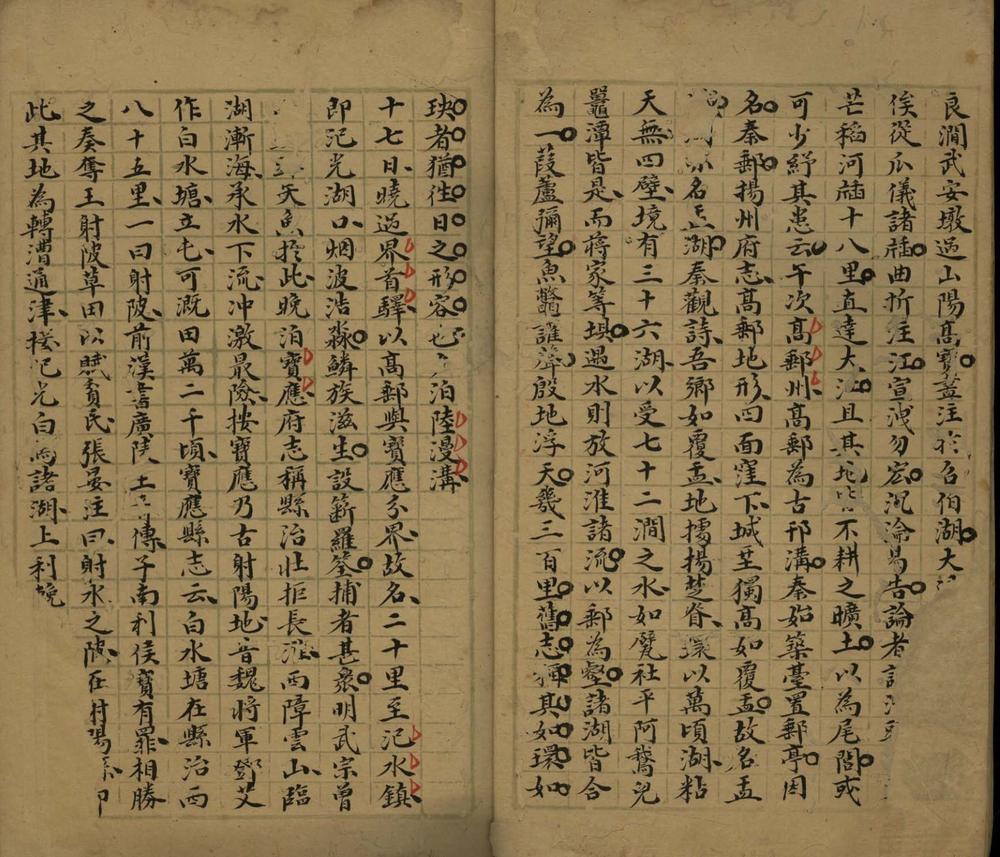 良澗武安墩過山陽高寶蓋注於召伯湖大
俟從瓜儀諸牐曲折注江宣洩勿宏沉淪易告論者
芒稻河牐十八里直達大江且其地 不耕之曠土以為尾閭或
可少紓其患云午次高郵州高郵為古邗溝秦始築臺置郵亭因
名秦郵揚州府志高郵地形四面窪下城基獨高如覆盂故名盂
名玉湖秦觀詩吾鄉如覆盂地據揚楚脊環以萬頃湖粘
天無四壁境有三十六湖以受七十二澗之水如甓社平阿鵞兒
鼉潭皆是而蔣家等垻遇水則放河淮諸流以郵為壑諸湖皆合
為一葭蘆彌望魚鼈誰聲殷地浮天幾三百里舊志稱其如環如
玦者猶徃日之形容也 泊陸漫溝
十七日曉過界首驛以高郵與寶應分界故名二十里至氾水鎮
即氾光湖口烟波浩淼鱗族滋生設簖羅筌捕者甚衆明武宗曾
矢魚於此晚泊寶應府志稱縣治壯拒長淮西障雲山臨
湖漸海承水下流冲激最險按寶應乃古射陽地昔魏將軍鄧艾
作白水塘立屯可溉田萬二千頃寶應縣志云白水塘在縣治西
八十五里一曰射陂前漢書廣陵王 傳子南利侯寶有罪相勝
之奏奪王射陂草田以賦貧民張晏注曰射水之陂在射陽縣即
此其地為轉漕通津接氾光白馬諸湖上利輓